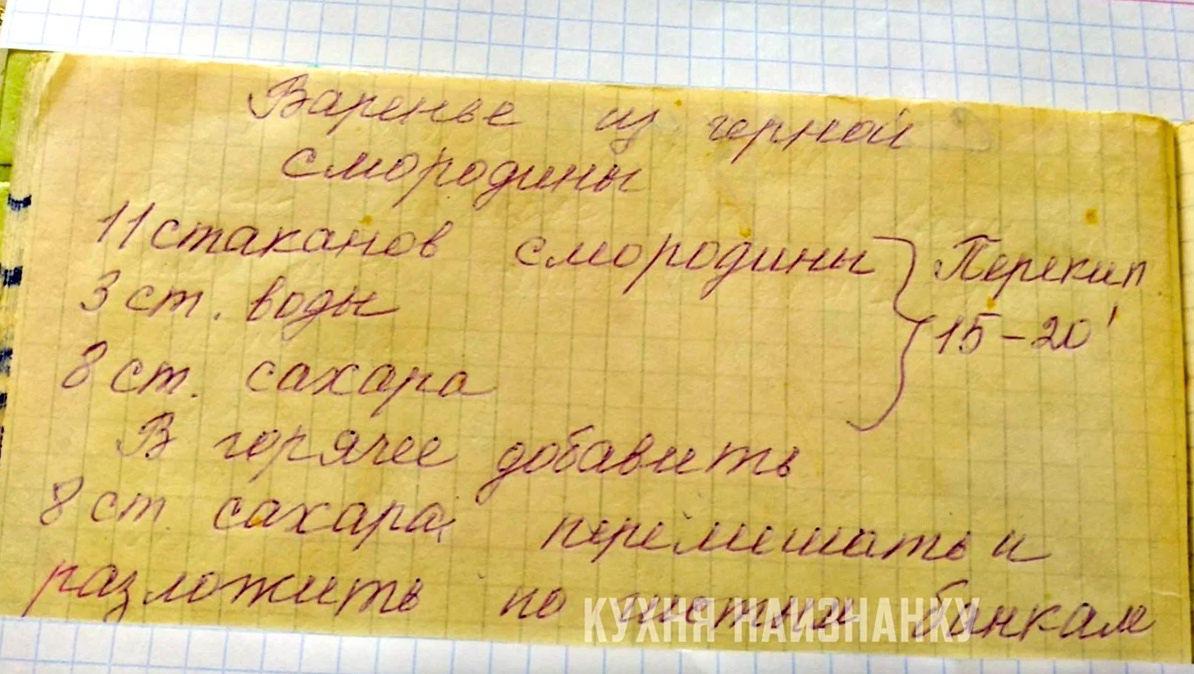 Варенье из черной
смородины
11 стаканов смородины } Перекип
3 ст. воды 15-20'
8 ст. сахара
В горячее добавить
8 ст. сахара перемешать и
разложить по чистым банкам
КУХНЯ НАИЗНАНКУ